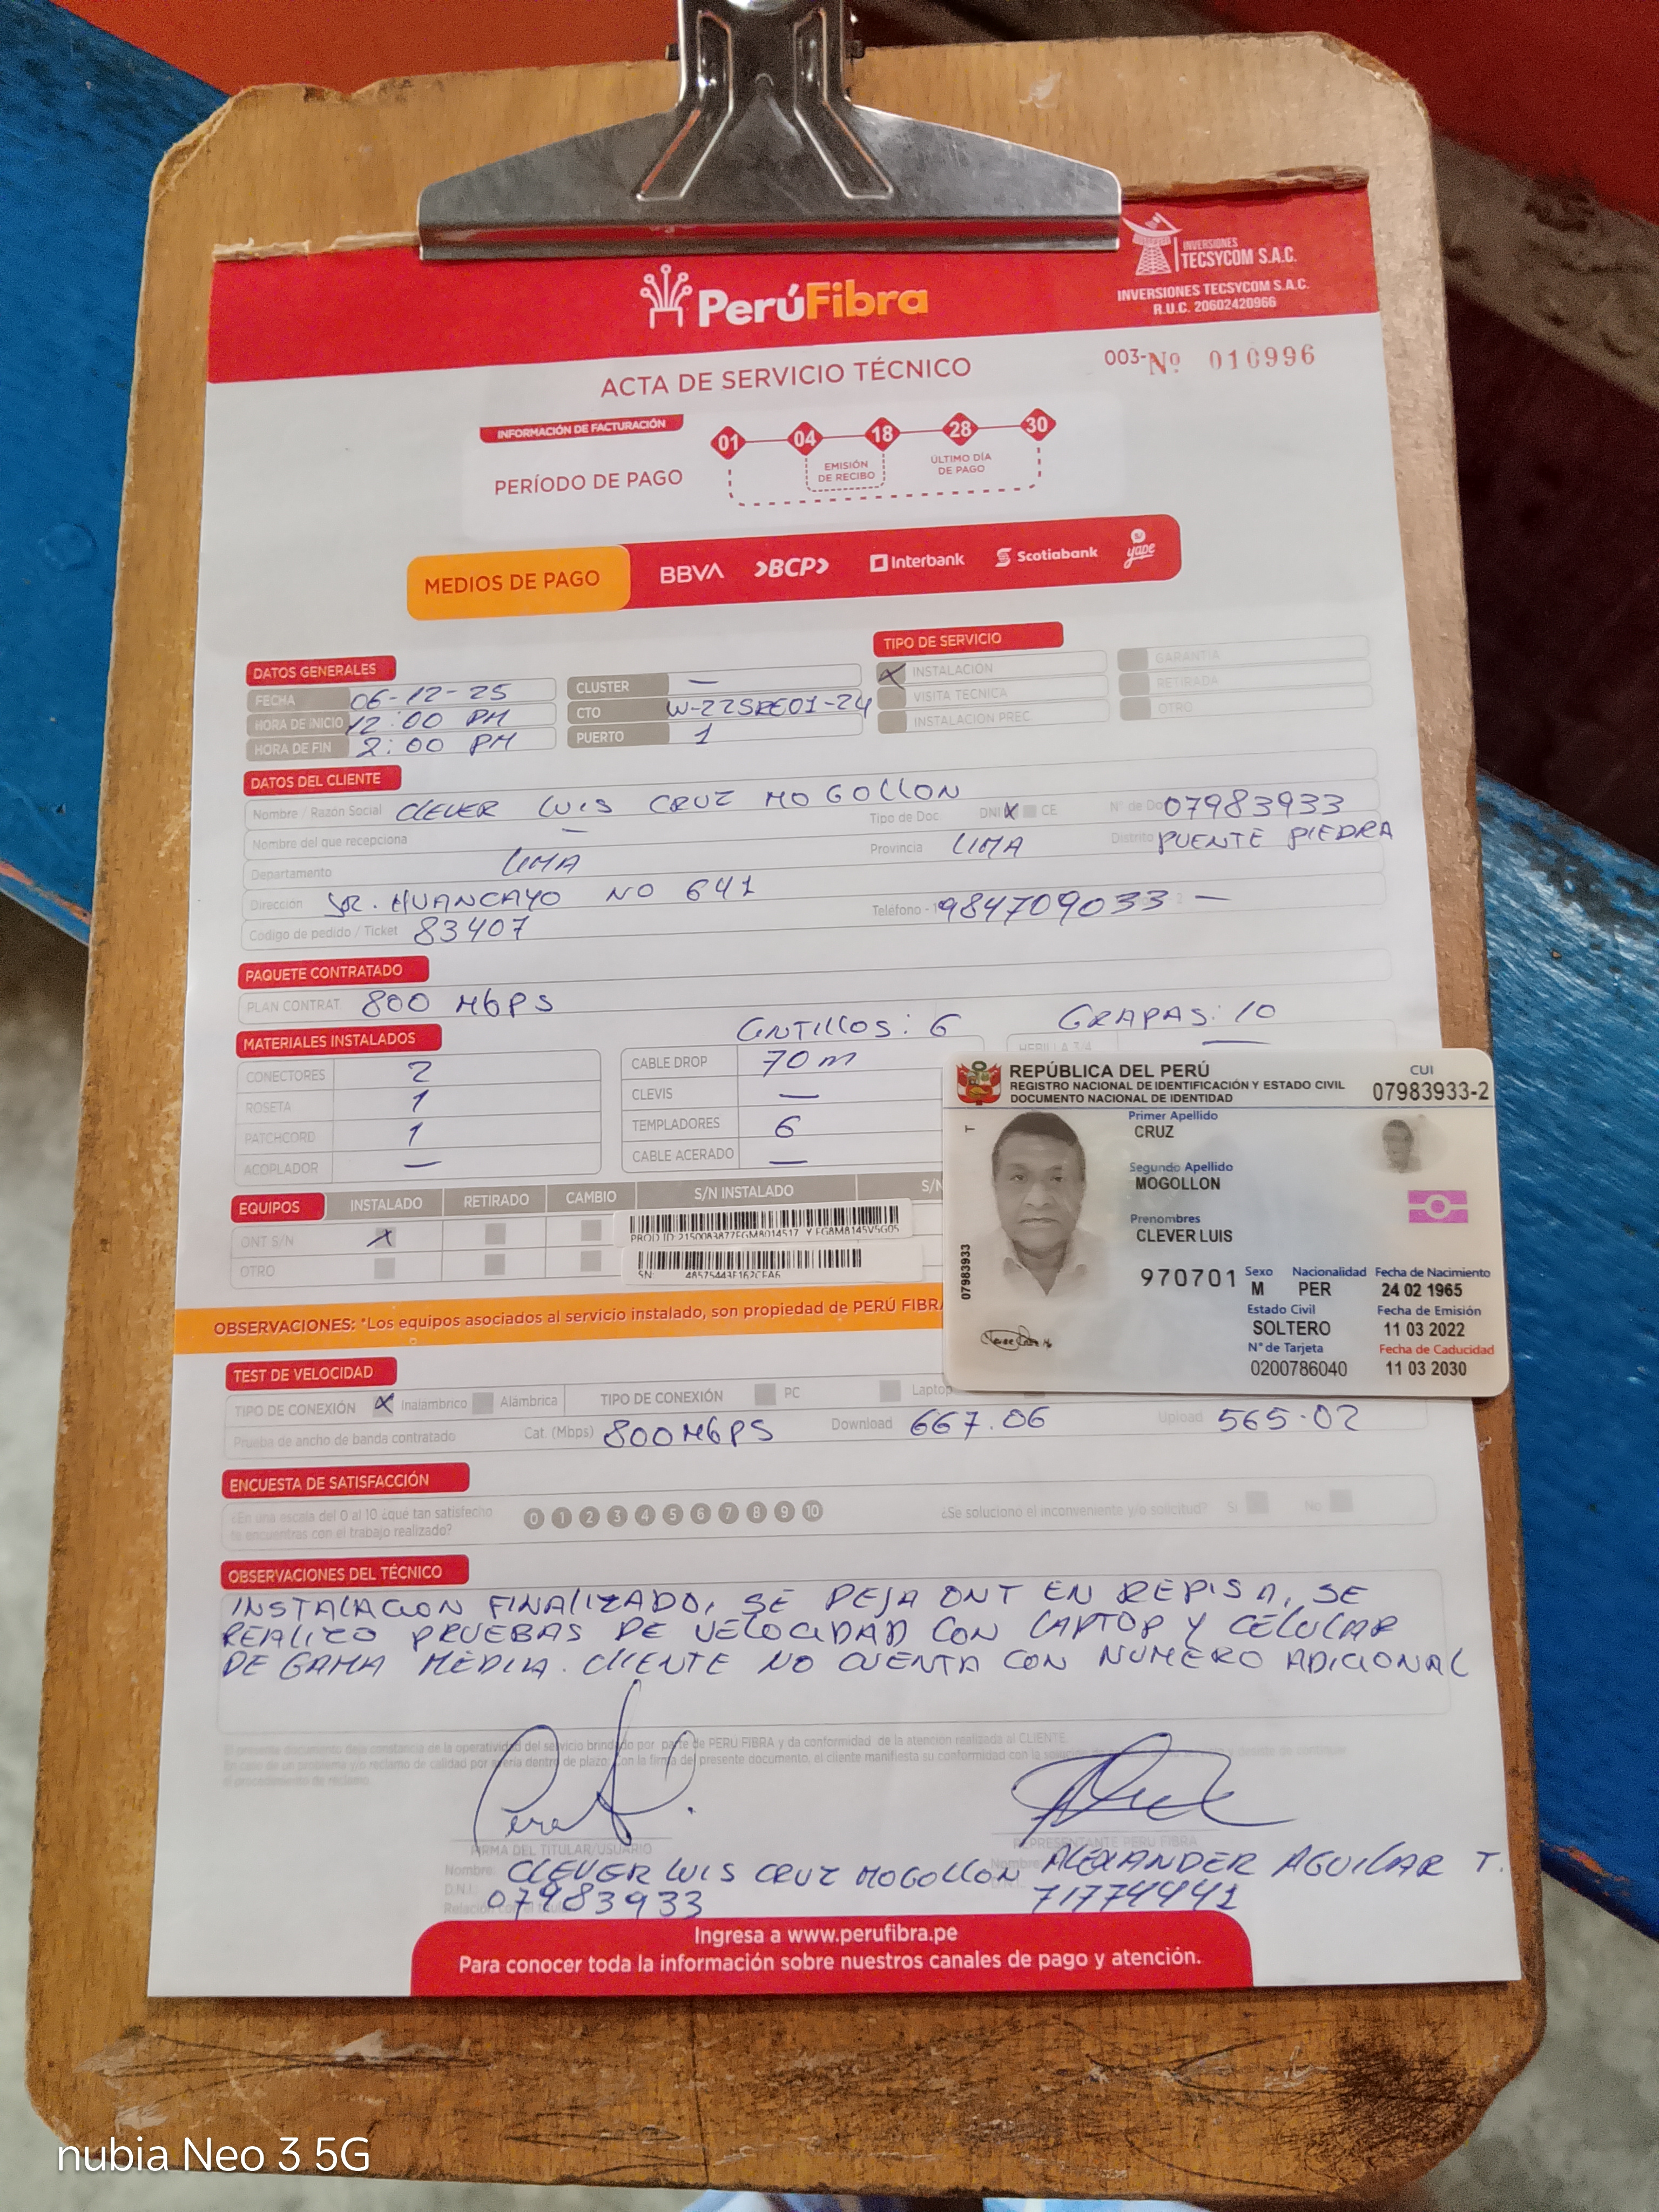 INVERSIONES
TECSYCOM S.A.C.
PerúFibra
INVERSIONES TECSYCOM S.A.C.
R.U.C. 20602420966
ACTA DE SERVICIO TÉCNICO
003-Nº 010996
INFORMACIÓN DE FACTURACIÓN
01 04 18 28 30
PERÍODO DE PAGO
EMISIÓN DE RECIBO
ÚLTIMO DÍA DE PAGO
MEDIOS DE PAGO BBVA BCP Interbank Scotiabank yape
DATOS GENERALES
FECHA 06-12-25
HORA DE INICIO 12:00 PM
HORA DE FIN 2:00 PM
CLUSTER —
CTO W-22SRE01-24
PUERTO 1
TIPO DE SERVICIO
X INSTALACIÓN GARANTIA
VISITA TECNICA RETIRADA
INSTALACION PREC OTRO
DATOS DEL CLIENTE
Nombre / Razón Social CLEVER LUIS CRUZ MOGOLLON Tipo de Doc. DNI X CE N° de Do 07983933
Nombre del que recepciona — Provincia LIMA Distrito PUENTE PIEDRA
Departamento LIMA
Dirección JR. HUANCAYO NO 641 Teléfono - 1 984709033 — 2
Codigo de pedido / Ticket 83407
PAQUETE CONTRATADO
PLAN CONTRAT. 800 Mbps
MATERIALES INSTALADOS GNTILLOS: 6 GRAPAS: 10
CONECTORES 2 CABLE DROP 70 m HEBILLA 3/4 —
ROSETA 1 CLEVIS —
PATCHCORD 1 TEMPLADORES 6
ACOPLADOR — CABLE ACERADO —
EQUIPOS INSTALADO RETIRADO CAMBIO S/N INSTALADO S/N
ONT S/N X
PROD ID: 2150083877EGM8014517 Y EG8M8145V5G05
OTRO
SN: 48575443F162CEA6
OBSERVACIONES: *Los equipos asociados al servicio instalado, son propiedad de PERÚ FIBRA
REPÚBLICA DEL PERÚ CUI
REGISTRO NACIONAL DE IDENTIFICACIÓN Y ESTADO CIVIL 07983933-2
DOCUMENTO NACIONAL DE IDENTIDAD
T
Primer Apellido
CRUZ
Segundo Apellido
MOGOLLON
Prenombres
CLEVER LUIS
07983933
970701
Sexo Nacionalidad Fecha de Nacimiento
M PER 24 02 1965
Estado Civil Fecha de Emisión
SOLTERO 11 03 2022
N° de Tarjeta Fecha de Caducidad
0200786040 11 03 2030
TEST DE VELOCIDAD
TIPO DE CONEXIÓN X Inalambrico Alámbrica TIPO DE CONEXIÓN PC Laptop
Prueba de ancho de banda contratado Cat. (Mbps) 800 Mbps Download 667.06 Upload 565.02
ENCUESTA DE SATISFACCIÓN
¿En una escala del 0 al 10 ¿que tan satisfecho
te encuentras con el trabajo realizado?
0 1 2 3 4 5 6 7 8 9 10
¿Se soluciono el inconveniente y/o solicitud? Si No
OBSERVACIONES DEL TÉCNICO
INSTALACION FINALIZADO, SE DEJA ONT EN REPISA, SE
REALIZO PRUEBAS DE VELOCIDAD CON LAPTOP Y CELULAR
DE GAMA MEDIA. CLIENTE NO CUENTA CON NUMERO ADICIONAL
El presente documento deja constancia de la operatividad del servicio brindado por parte de PERÚ FIBRA y da conformidad de la atencion realizada al CLIENTE.
FIRMA DEL TITULAR/USUARIO REPRESENTANTE PERU FIBRA
Nombre: CLEVER LUIS CRUZ MOGOLLON Nombre ALEXANDER AGUILAR T.
D.N.I. 07983933 71774441
Ingresa a www.perufibra.pe
Para conocer toda la información sobre nuestros canales de pago y atención.
nubia Neo 3 5G